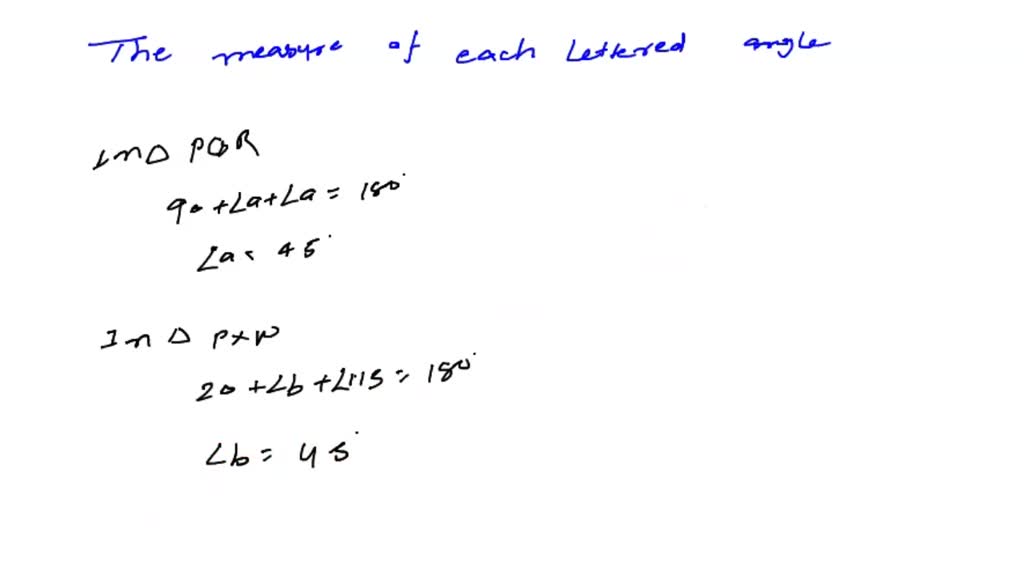 The measure of each Lettered angle
In △ PQR
90 + ∠a + ∠a = 180°
∠a = 45°
In △ PXW
20 + ∠b + ∠115 = 180°
∠b = 45°